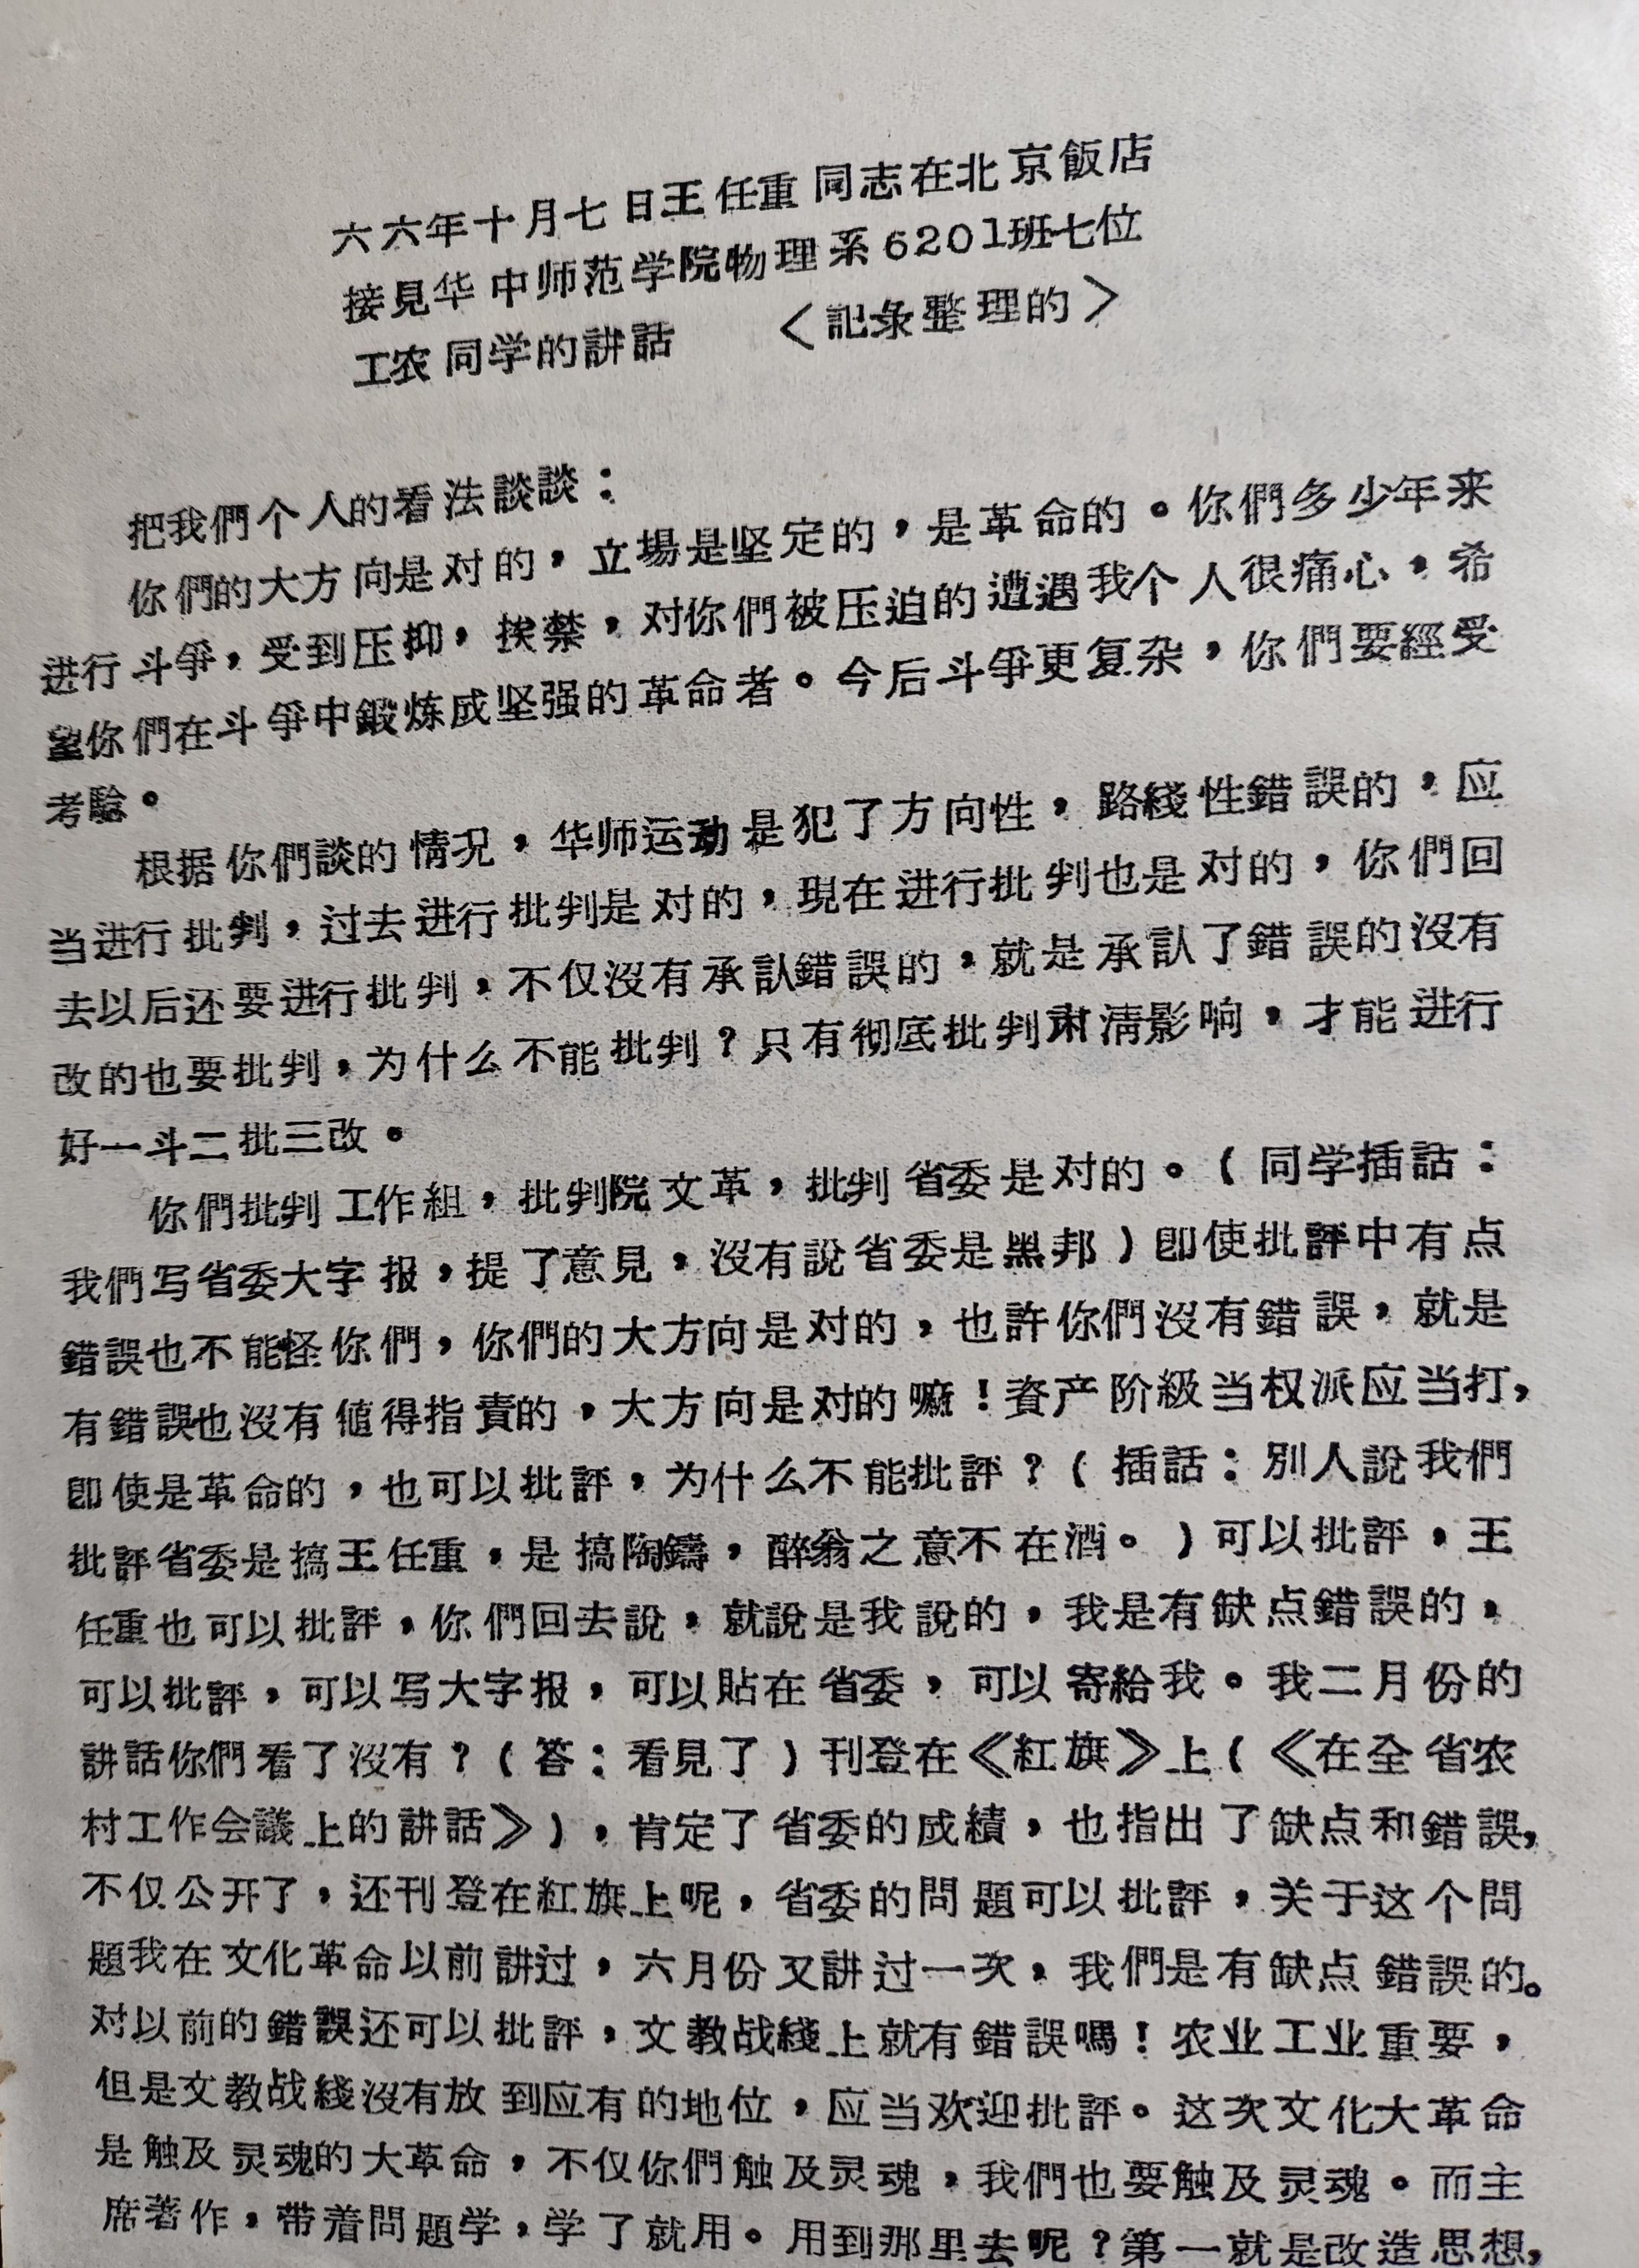 六六年十月七日王任重同志在北京飯店
接見华中师范学院物理系6201班七位
工农同学的講話 〈記录整理的〉
把我們个人的看法談談：
你們的大方向是对的，立場是坚定的，是革命的。你們多少年来
进行斗爭，受到压抑，挨禁，对你們被压迫的遭遇我个人很痛心，希
望你們在斗爭中鍛炼成坚强的革命者。今后斗爭更复杂，你們要經受
考驗。
根据你們談的情况，华师运动是犯了方向性，路綫性錯誤的，应
当进行批判，过去进行批判是对的，現在进行批判也是对的，你們回
去以后还要进行批判，不仅沒有承認錯誤的，就是承認了錯誤的沒有
改的也要批判，为什么不能批判？只有彻底批判肃淸影响，才能进行
好一斗二批三改。
你們批判工作組，批判院文革，批判省委是对的。（同学插話：
我們写省委大字报，提了意見，沒有說省委是黑邦）卽使批評中有点
錯誤也不能怪你們，你們的大方向是对的，也許你們沒有錯誤，就是
有錯誤也沒有値得指責的，大方向是对的嘛！資产阶級当权派应当打，
卽使是革命的，也可以批評，为什么不能批評？（插話：別人說我們
批評省委是搞王任重，是搞陶鑄，醉翁之意不在酒。）可以批評，王
任重也可以批評，你們回去說，就說是我說的，我是有缺点錯誤的，
可以批評，可以写大字报，可以貼在省委，可以寄給我。我二月份的
講話你們看了沒有？（答：看見了）刊登在《紅旗》上（《在全省农
村工作会議上的講話》），肯定了省委的成績，也指出了缺点和錯誤，
不仅公开了，还刊登在紅旗上呢，省委的問題可以批評，关于这个問
題我在文化革命以前講过，六月份又講过一次，我們是有缺点錯誤的。
对以前的錯誤还可以批評，文教战綫上就有錯誤嗎！农业工业重要，
但是文教战綫沒有放到应有的地位，应当欢迎批評。这次文化大革命
是触及灵魂的大革命，不仅你們触及灵魂，我們也要触及灵魂。而主
席著作，带着問題学，学了就用。用到那里去呢？第一就是改造思想，